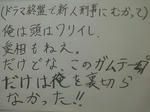 (ドラマ終盤で新人刑事にむかって)
俺は頭はワリイし
愛相もねえ。
だけどな、このガムテープ
だけは俺を裏切ら
なかった!!